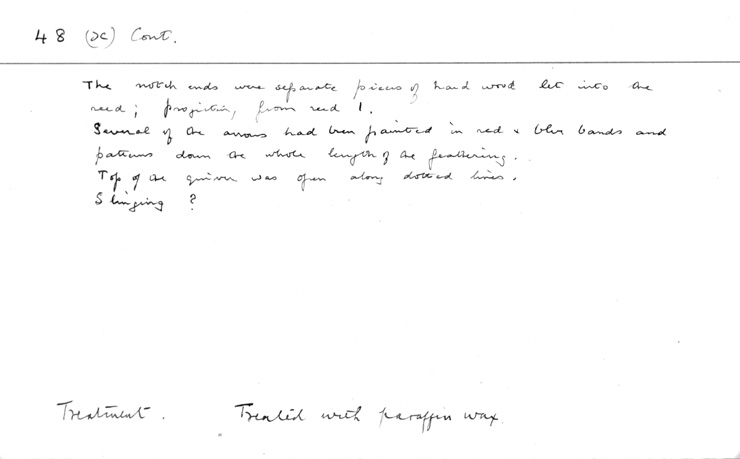 48 (x) Cont.
The notch ends were separate pieces of hard wood let into the
reed; projection, from reed 1.
Several of the arrows had been painted in red & blue bands and
patterns down the whole length of the feathering.
Top of the quiver was open along dotted lines.
Slinging ?
Treatment. Treated with paraffin wax.